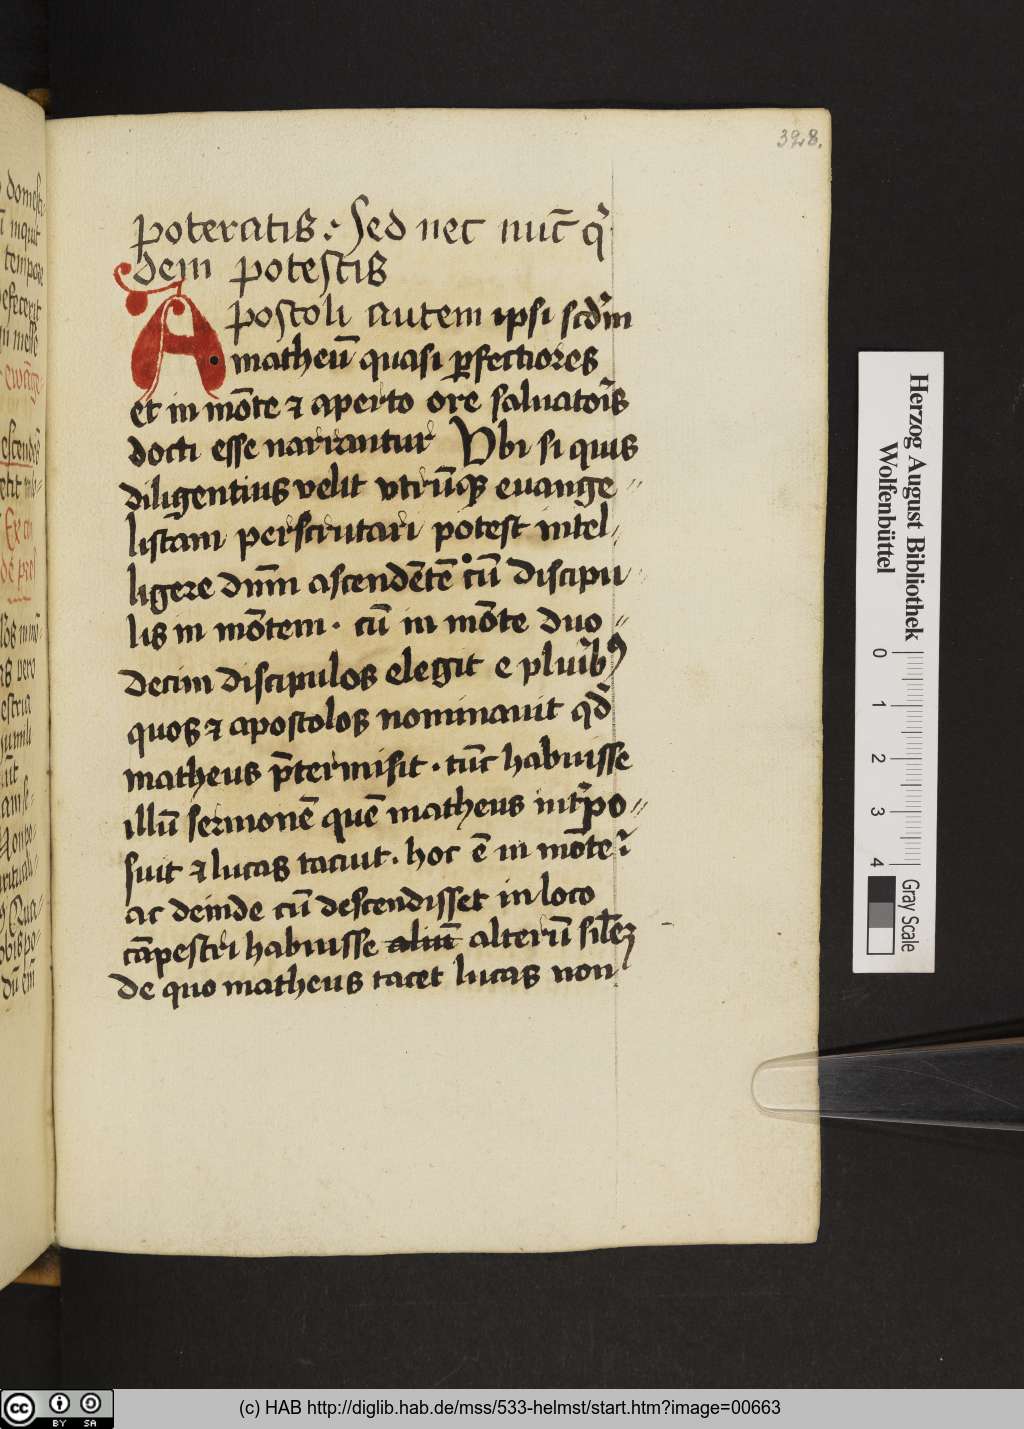 328.
poteratis : Sed nec nūc q̇
dem potestis
Apostoli autem ipsi scdm̄
matheū quasi ꝑfectiores
et in mōte ⁊ aperto ore saluatoris
docti esse narrantur Vbi si quis
diligentius velit vtrūqꝫ euange〃
listam perscrutari potest intel〃
ligere dn̄m ascendētē cū discipu
lis in mōtem · cū in mōte duo〃
decim discipulos elegit e pluribꝰ
quos ⁊ apostolos nominauit qd̄
matheus p̄termisit · tūc habuisse
illū sermonē quē matheus int̕po〃
suit ⁊ lucas tacuit · hoc ē in mōte
ac deinde cū descendisset in loco
cāpestri habuisse aliū alterū sil̄eꝫ
de quo matheus tacet lucas non
Herzog August Bibliothek
Wolfenbüttel
0 1 2 3 4
Gray Scale
(c) HAB http://diglib.hab.de/mss/533-helmst/start.htm?image=00663
cc BY SA